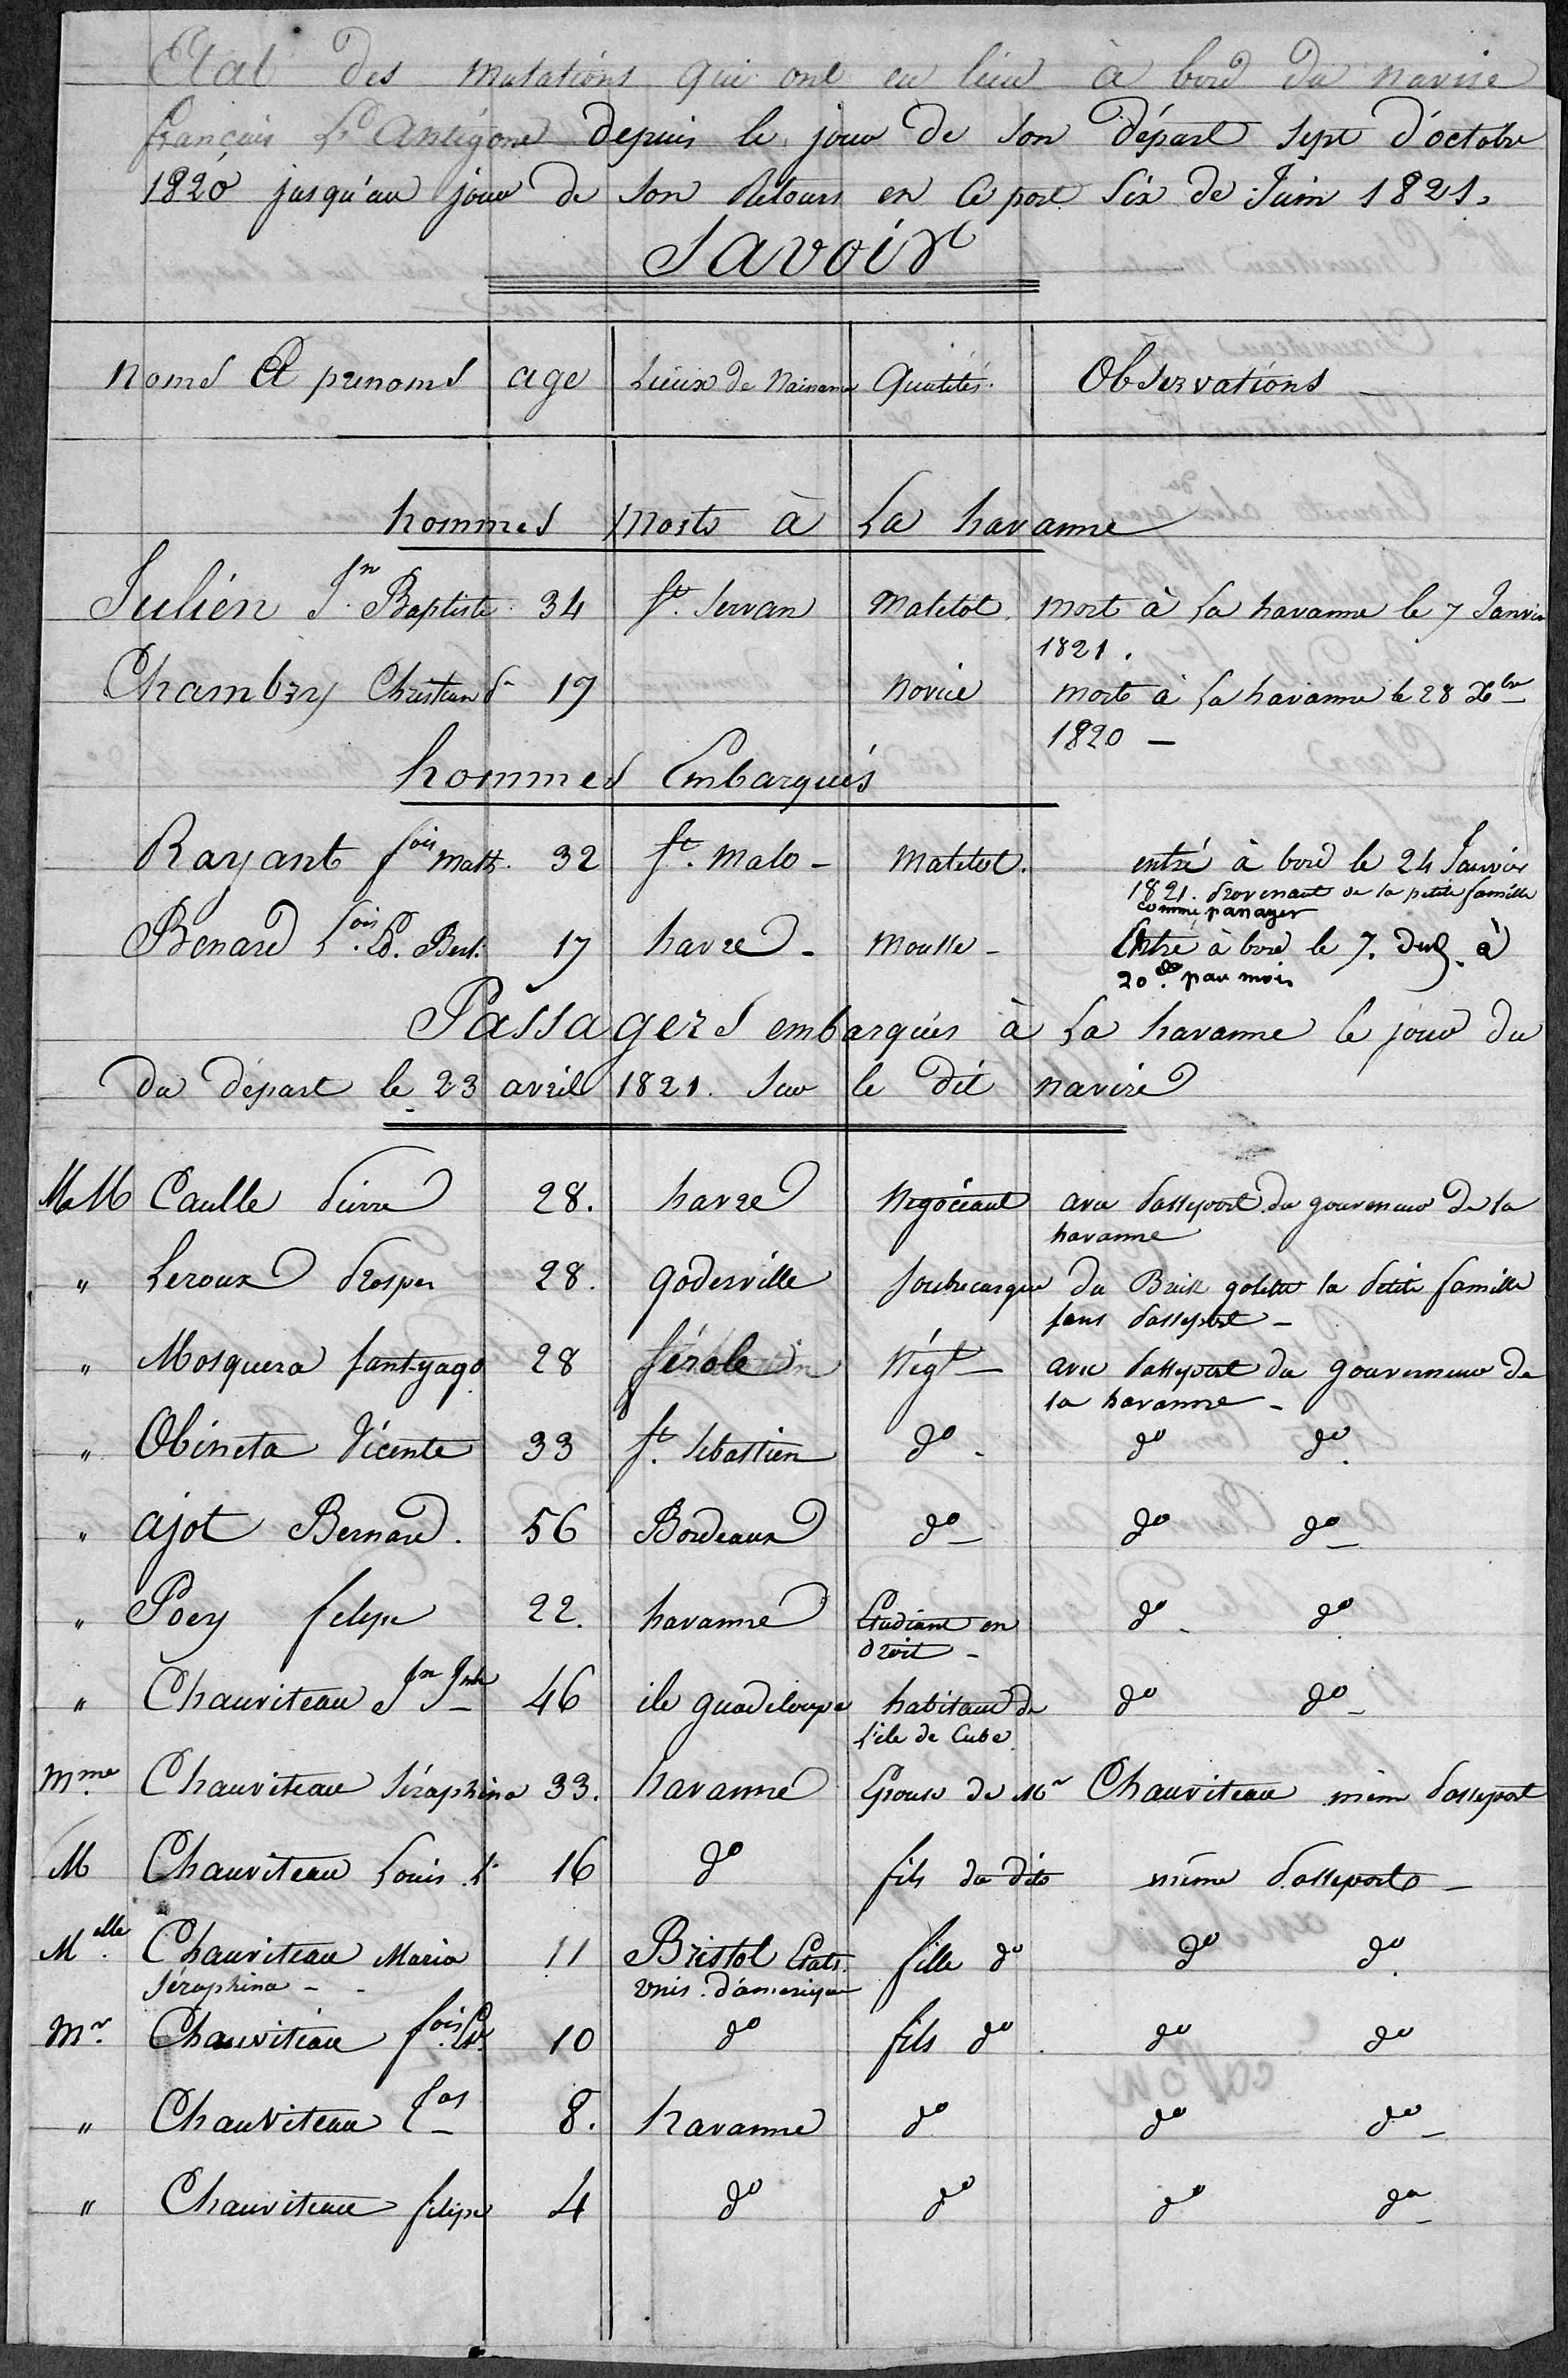 Etat des mutations qui ont eu lieu à bord du navire
français L'Antigone depuis le jour de son départ sept d'octobre
1820 jusqu'au jour de son Retours en ce port six de Juin 1821.
Savoir
noms Et prenoms age Lieux de Naissance Qualités Observations
hommes morts à La havanne
Julien Jn Baptiste 34 St. Servan Matelot mort à La havanne le 7 Janvier
1821.
Chambry Christian 17 novice mort à La havanne le 28 Xbre
1820 —
hommes Embarqués
Rayant fois Math. 32 St. Malo - Matelot. entré à bord le 24 Janvier
1821. Provenant de la petite famille
comme passager
Benard 17 havre - mousse - Entré à bord le 7. dud. à
20 par mois
Passagers embarqués à La havanne le jour du
du départ le 23 avril 1821. sur le dit navire
MM Caulle Pierre 28. havre Négociant avec Passeport du gouverneur de la
havanne
" Leroux Prosper 28. goderville Soubrecargue du Brick golette la Petite famille
sans Passeport -
" Mosquera santyago 28 férole Négt - avec Passeport du gouverneur de
la havanne -
" Obineta Vicente 33 St. Sebastien do - do do.
" ajot Bernard. 56 Bordeaux do - do do -
" Poey felipe 22. havanne Etudiant en do - do
droit -
" Chauviteau Jn Jph 46 ile guadeloupe habitant de do do -
l'ile de Cube.
Mme. Chauviteau Séraphina 33. havanne Epouse de Mr Chauviteau même Passeport
M Chauviteau Louis 16 do fils du dito même Passeport -
Melle. Chauviteau Maria 11 Bristol Etats fille do do do.
Séraphina - - unis d'amerique
Mr. Chauviteau fois 10 do fils do. do do
" Chauviteau 8. havanne do do do -
" Chauviteau felipe 4 do do do do -